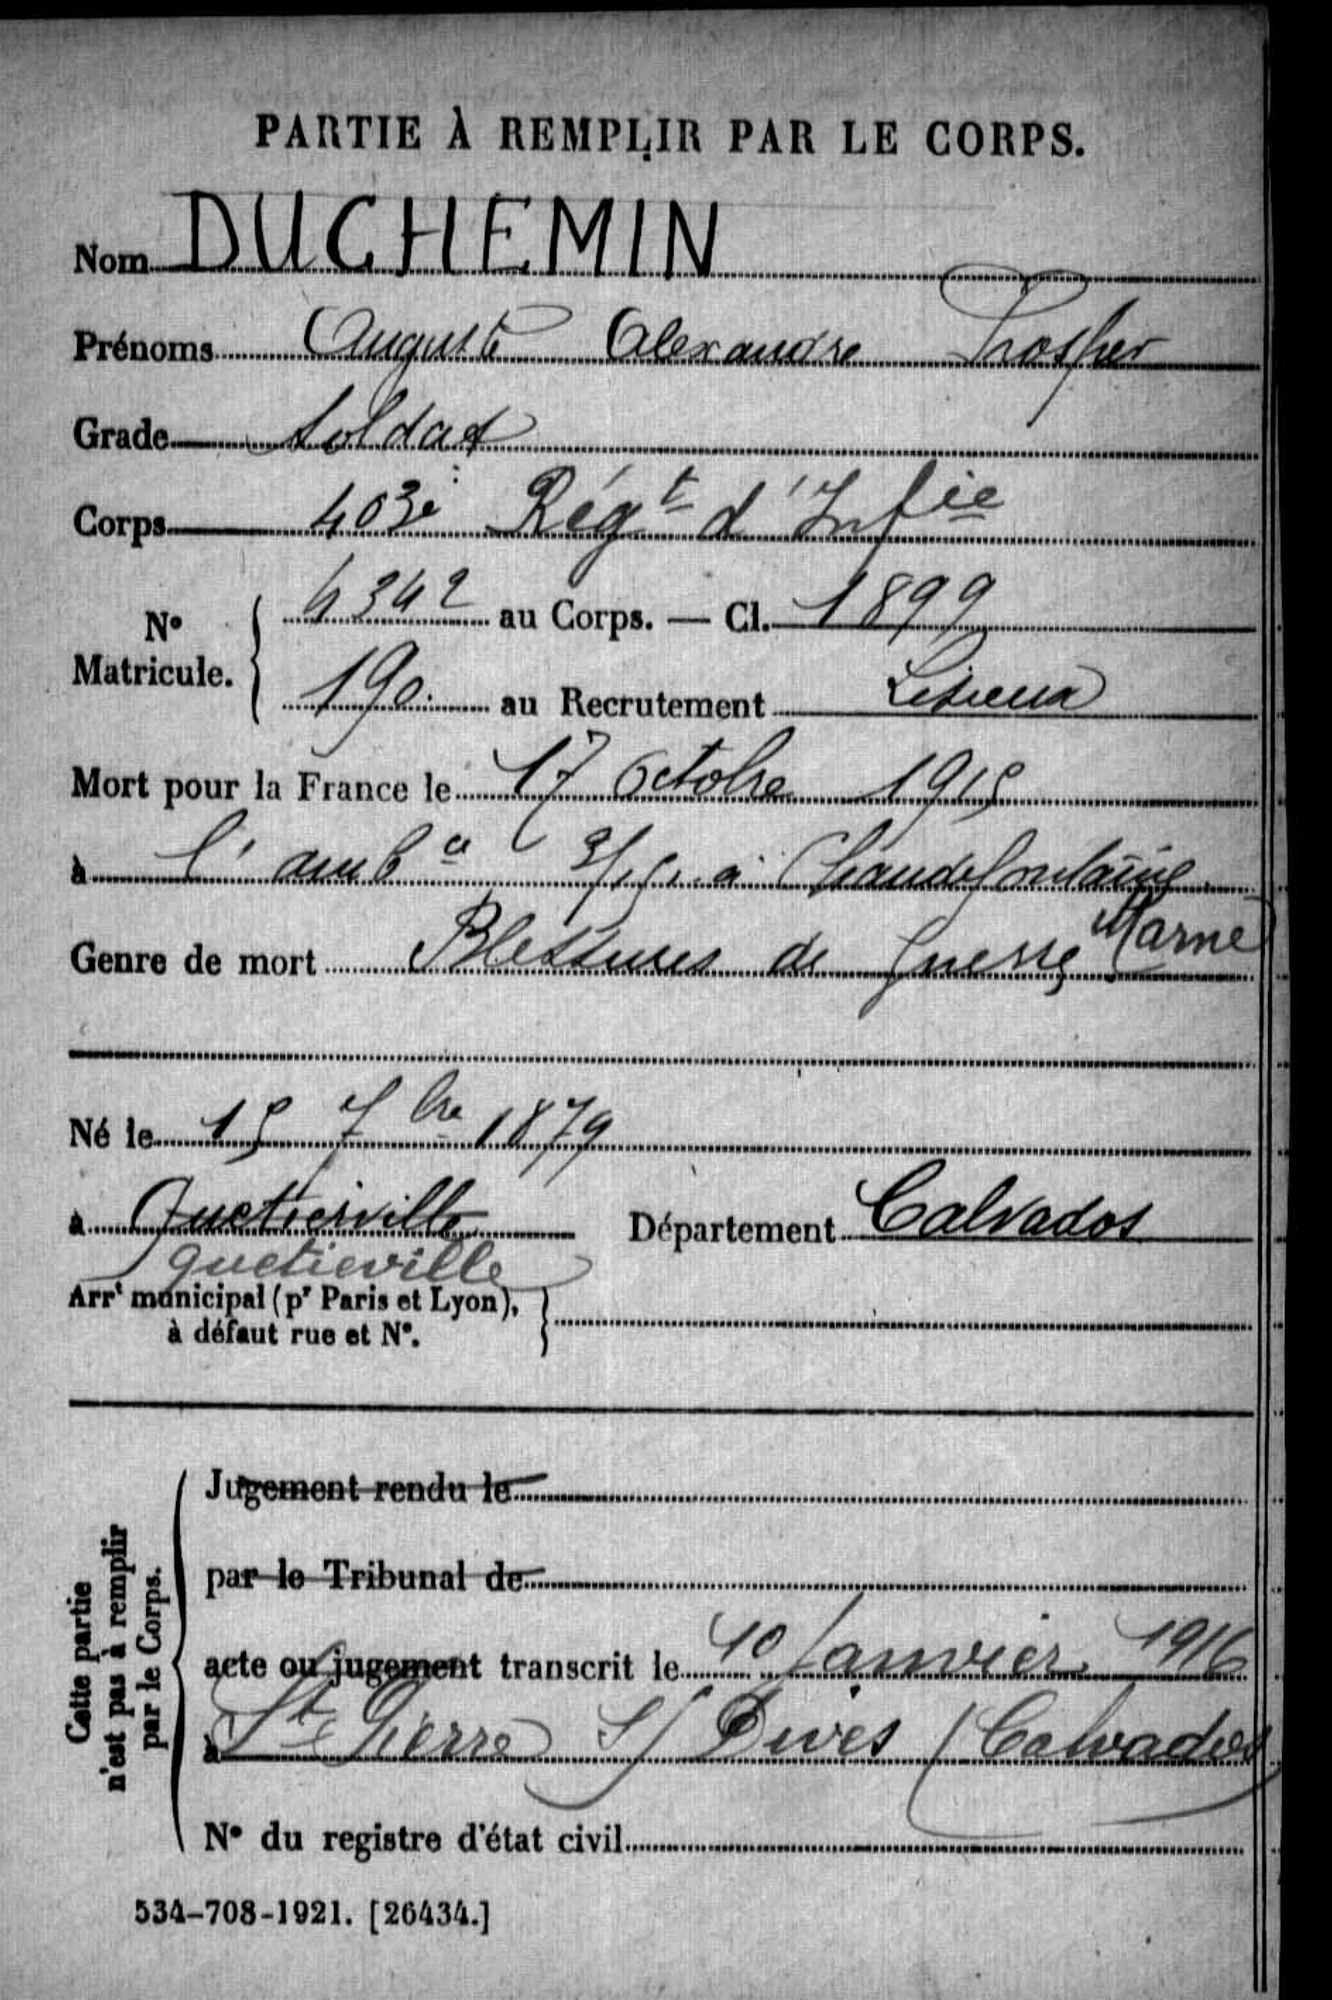 PARTIE À REMPLIR PAR LE CORPS.
Nom DUCHEMIN
Prénoms Auguste Alexandre Prosper
Grade Soldat
Corps 403e Régt d'Infie
N° Matricule. 4342 au Corps. — Cl. 1899
190. au Recrutement Lisieux
Mort pour la France le 17 Octobre 1915
à l'ambce 3/15 à Chaudefontaine
Marne
Genre de mort Blessures de guerre
Né le 15 7bre 1879
à Quetierville Département Calvados
Quetieville
Arrt municipal (pr Paris et Lyon),
à défaut rue et N°.
Cette partie
n'est pas à remplir
par le Corps.
Jugement rendu le
par le Tribunal de
acte ou jugement transcrit le 10 Janvier 1916
à St Pierre S/ Dives (Calvados
N° du registre d'état civil
534-708-1921. [26434.]